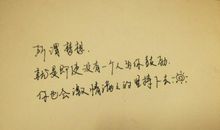 所谓梦想，
就是即使没有一个人为你鼓励，
你也会激情满人的坚持下去一演